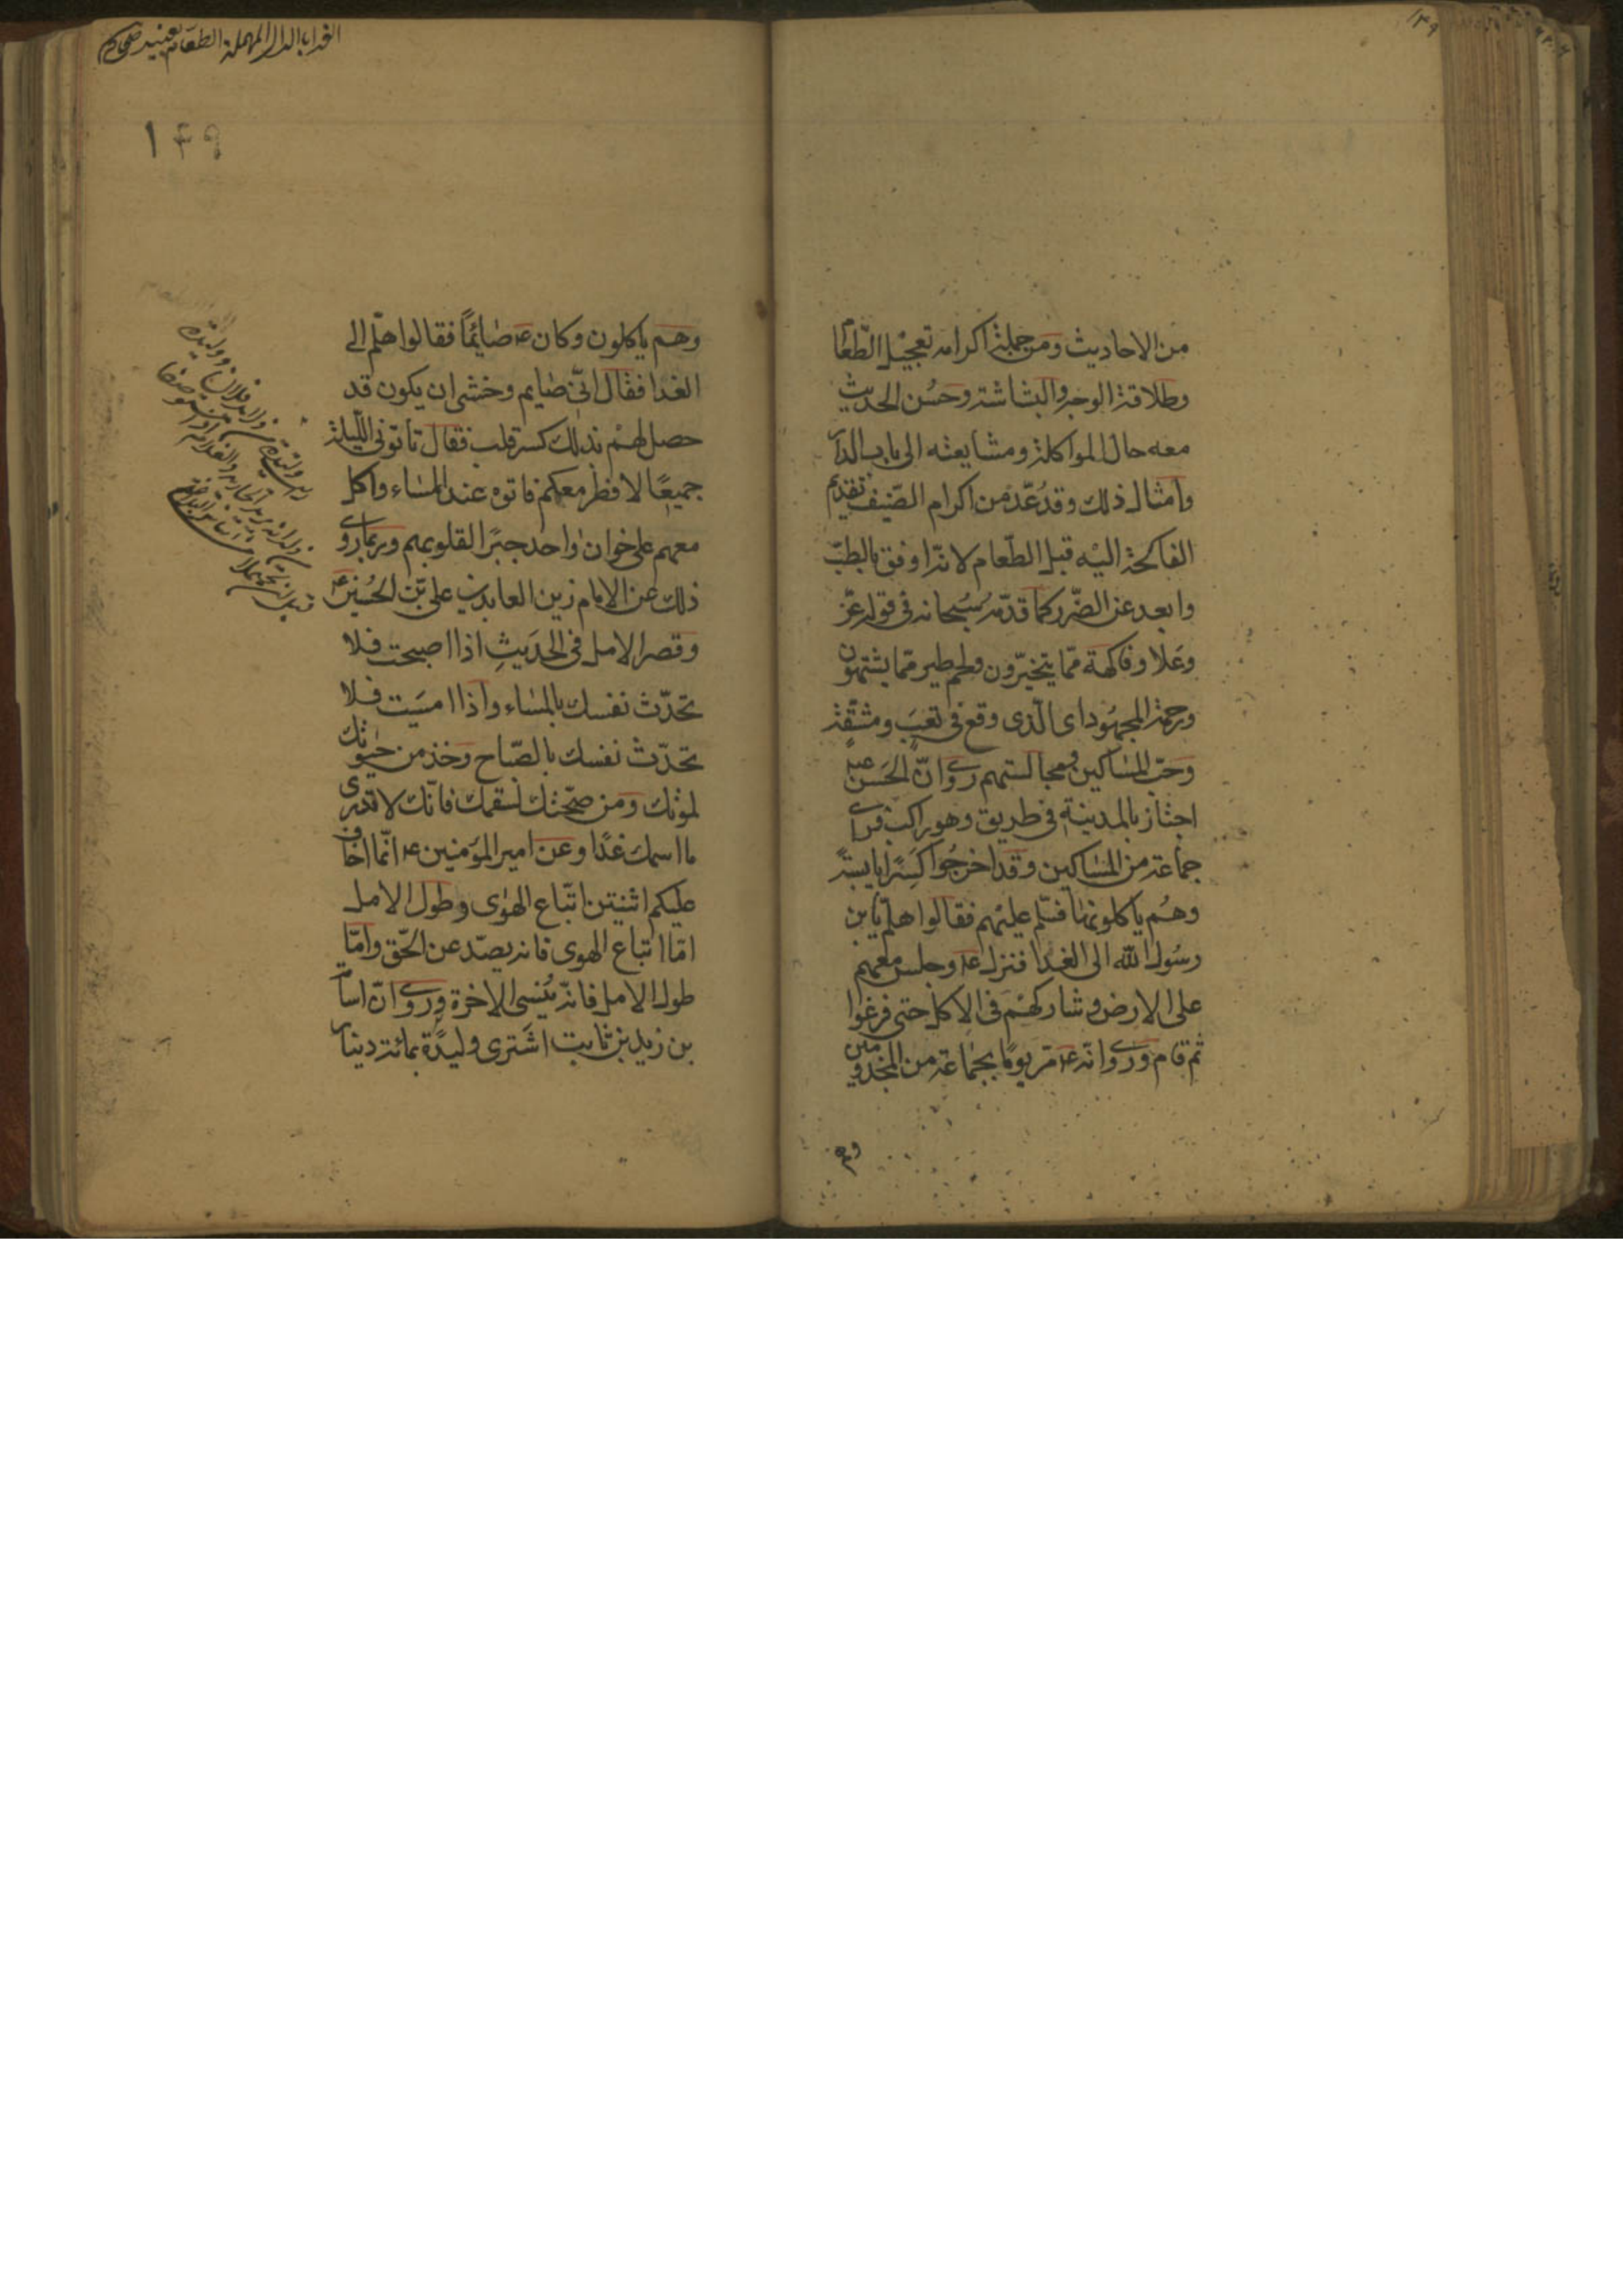 من الاحاديث ومن جملة اكرامه تعجيل الطّعام
وطلاقة الوجه والبشاشة وحسن الحديث
معه حال المواكلة ومشايعته الى باب الدار
وامثال ذلك وقد عدّ من اكرام الضّيف تقديم
الفاكهة اليه قبل الطّعام لانّه اوفق بالطبّ
وابعد عن الضّرر كما قدّمه سبحانه فى قوله عزّ
وعلا وفاكهة ممّا يتخيّرون ولحم طير ممّا يشتهون
ورحمة المجهود اى الّذى وقع فى تعب ومشقّة
وحبّ المساكين ومجالستهم روى انّ الحسن ع
اجتاز بالمدينة فى طريق وهو راكب فراى
جماعة من المساكين وقد اخرجوا كسرًا يابسة
وهم ياكلونها فسّلم عليهم فقالوا هلمّ يابن
رسول الله الى الغدا فنزل ع وجلس معهم
على الارض وشاركهم فى الاكل حتى فرغوا
ثم قام وروى انّه ع مرّ يومًا بجماعة من المجذومين
وهم
١٤٩
الغدا بالدال المهملة الطعام بعينه صحاح
١٤٩
وهم ياكلون وكان ع صايمًا فقالوا هلّم الى
الغدا فقال انّى صايم وخشى ان يكون قد
حصل لهم بذلك كسر قلب فقال تاتونى اللّيلة
جميعًا لافطر معكم فاتوه عند المساء واكل
معهم على خوان واحد جبرًا لقلوبهم وربما روى
ذلك عن الامام زين العابدين على بن الحسين ع
وقصر الامل فى الحديث اذا اصبحت فلا
تحدّث نفسك بالمساء واذا امسيت فلا
تحدّث نفسك بالصّباح وخذ من حيوتك
لموتك ومن صحّتك لسقمك فانّك لا تدرى
ما اسمك غدًا وعن امير المؤمنين ع انّما اخاف
عليكم اثنتين اتّباع الهوى وطول الامل
امّا اتباع الهوى فانه يصدّ عن الحّق وامّا
طول الامل فانّه ينسى الاخرة وروى انّ اسامة
بن زيد بن ثابت اشترى وليدة بمائة دينار